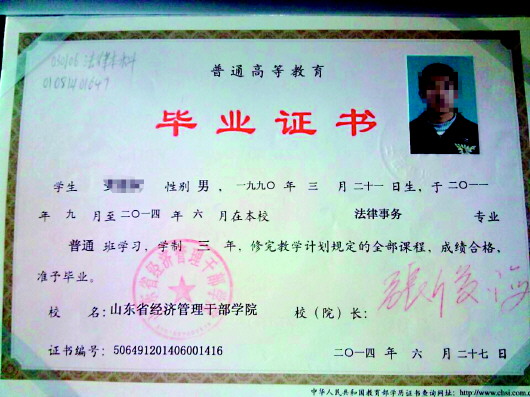 普通高等教育
毕业证书
学生 性别 男，一九九〇年 三 月 二十一日生，于二〇一一
年 九 月至二〇一四年 六 月在本校 法律事务 专业
普通 班学习，学制 三 年，修完教学计划规定的全部课程，成绩合格，
准予毕业。
校 名：山东省经济管理干部学院 校（院）长：
证书编号：506491201406001416 二〇一四年 六 月二十七日
中华人民共和国教育部学历证书查询网址：http://www.chsi.com.c